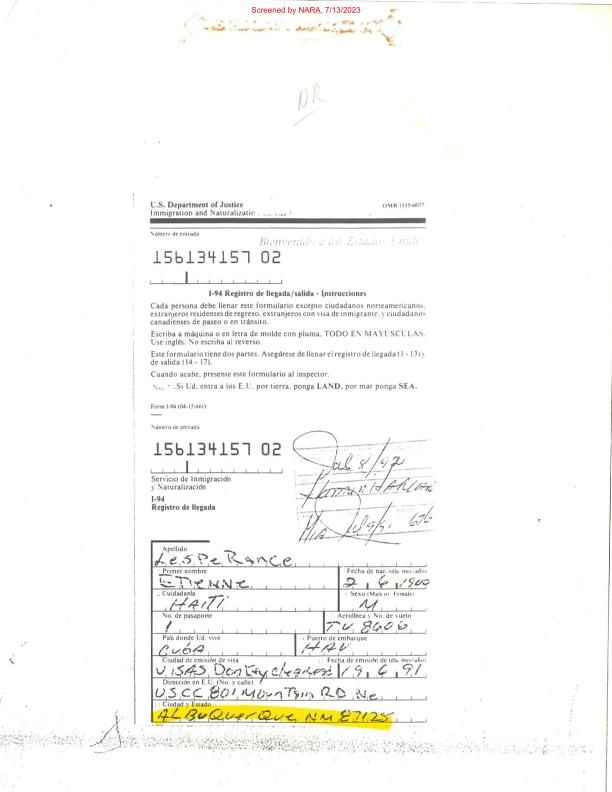 Screened by NARA, 7/13/2023
NR
U.S. Department of Justice OMB 1115-0077
Immigration and Naturalizatio
Número de entrada
Bienvenido a los Estados Unido
156134157 02
I-94 Registro de llegada/salida - Instrucciones
Cada persona debe llenar este formulario excepto ciudadanos norteamericanos,
extranjeros residentes de regreso, extranjeros con visa de inmigrante, y ciudadanos
canadienses de paseo o en tránsito.
Escriba a máquina o en letra de molde con pluma, TODO EN MAYUSCULAS.
Use inglés. No escriba al reverso.
Este formulario tiene dos partes. Asegúrese de llenar el registro de llegada (1 - 13) y
de salida (14 - 17).
Cuando acabe, presente este formulario al inspector.
Si Ud. entra a los E.U. por tierra, ponga LAND, por mar ponga SEA.
Form I-94 (04-15-86)Y
Número de entrada
156134157 02
Servicio de Inmigración
y Naturalización
I-94
Registro de llegada
8/92
Apellido
LesPeRance
Primer nombre Fecha de nac. (día/mes/año)
ETIENNE 2, 6, 1900
Ciudadanía Sexo (Male or Female)
HAITI M
No. de pasaporte Aerolínea y No. de vuelo
1 T.V. 8606
País donde Ud. vive Puerto de embarque
CUBA HAV
Ciudad de emisión de visa Fecha de emisión de (día/mes/año)
VISAS 19, 6, 91
Dirección en E.U. (No. y calle)
USCC 801 MounTain RD Ne
Ciudad y Estado
ALBuQuerQue NM 87125